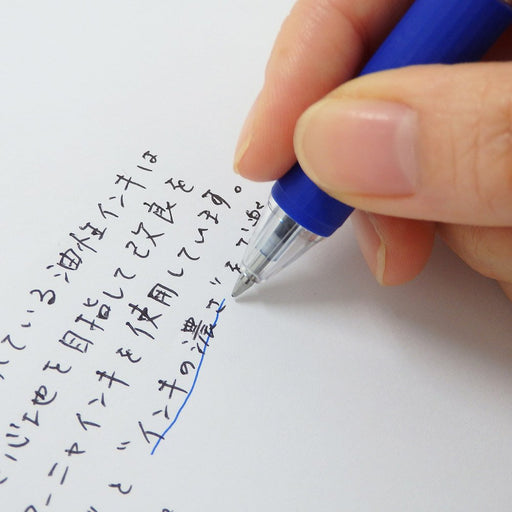 ている油性インキは
心地を目指して改良を
ーニャインキを使用しています。
と"インキの濃さ"を